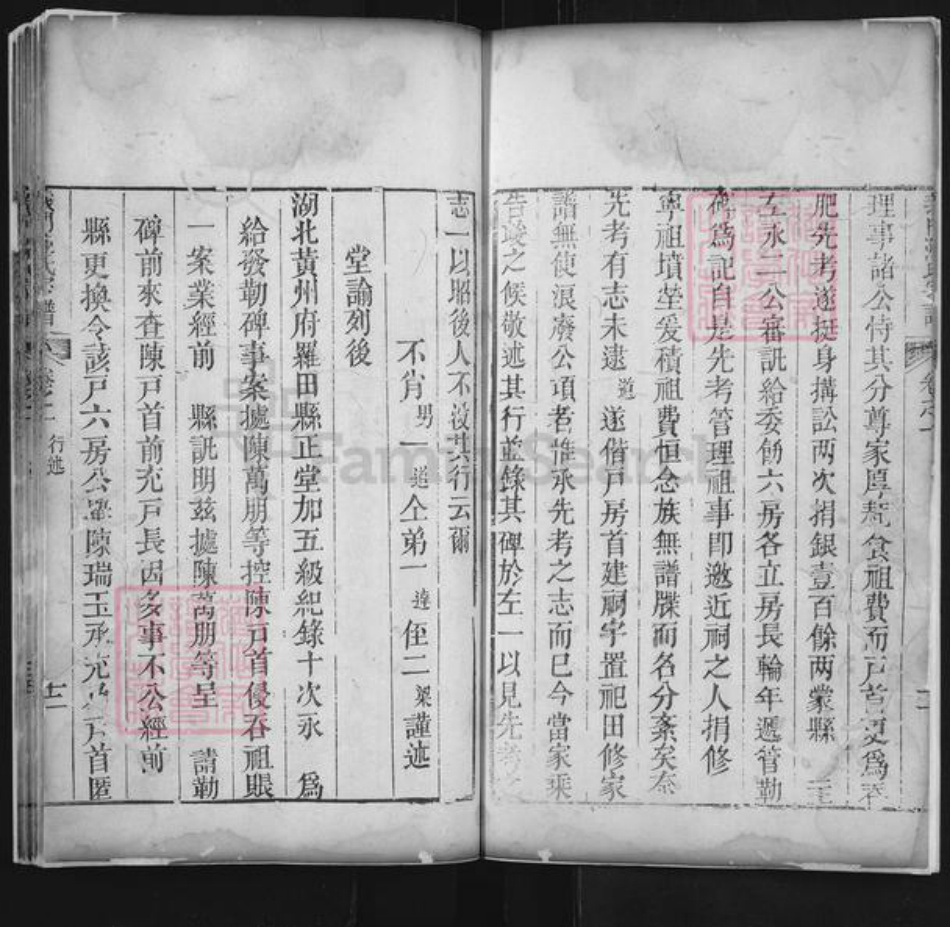 理事諸公恃其分尊家厚輒食祖費而戸首更爲吞
肥先考遂挺身搆訟两次捐銀壹百餘两蒙縣 主
左永二公審訊給委飭六房各立房長輪年遞管勒
碑爲記自是先考管理祖事即邀近祠之人捐修
寧祖墳塋爰積祖費恒念族無譜牒而名分紊矣奈
先考有志未逮 道 遂偕戸房首建祠宇置祀田修家
譜無使浪廢公項者惟承先考之志而已今當家乘
告竣之候敬述其行並錄其碑於左一以見先考
志一以昭後人不没其行云爾
不肖 男 一 道 仝弟一 達 侄二 梁 謹述
堂諭列後
湖北黃州府羅田縣正堂加五級紀錄十次永 爲
給發勒碑事案據陳萬朋等控陳戸首侵吞祖賬
一案業經前 縣訊明兹據陳萬朋等呈 請勒
碑前來查陳戸首前充戸長因多事不公經前
縣更換令該戸六房公舉陳瑞玉承充 戸首匿
氏宗譜 卷之一 行述 十二